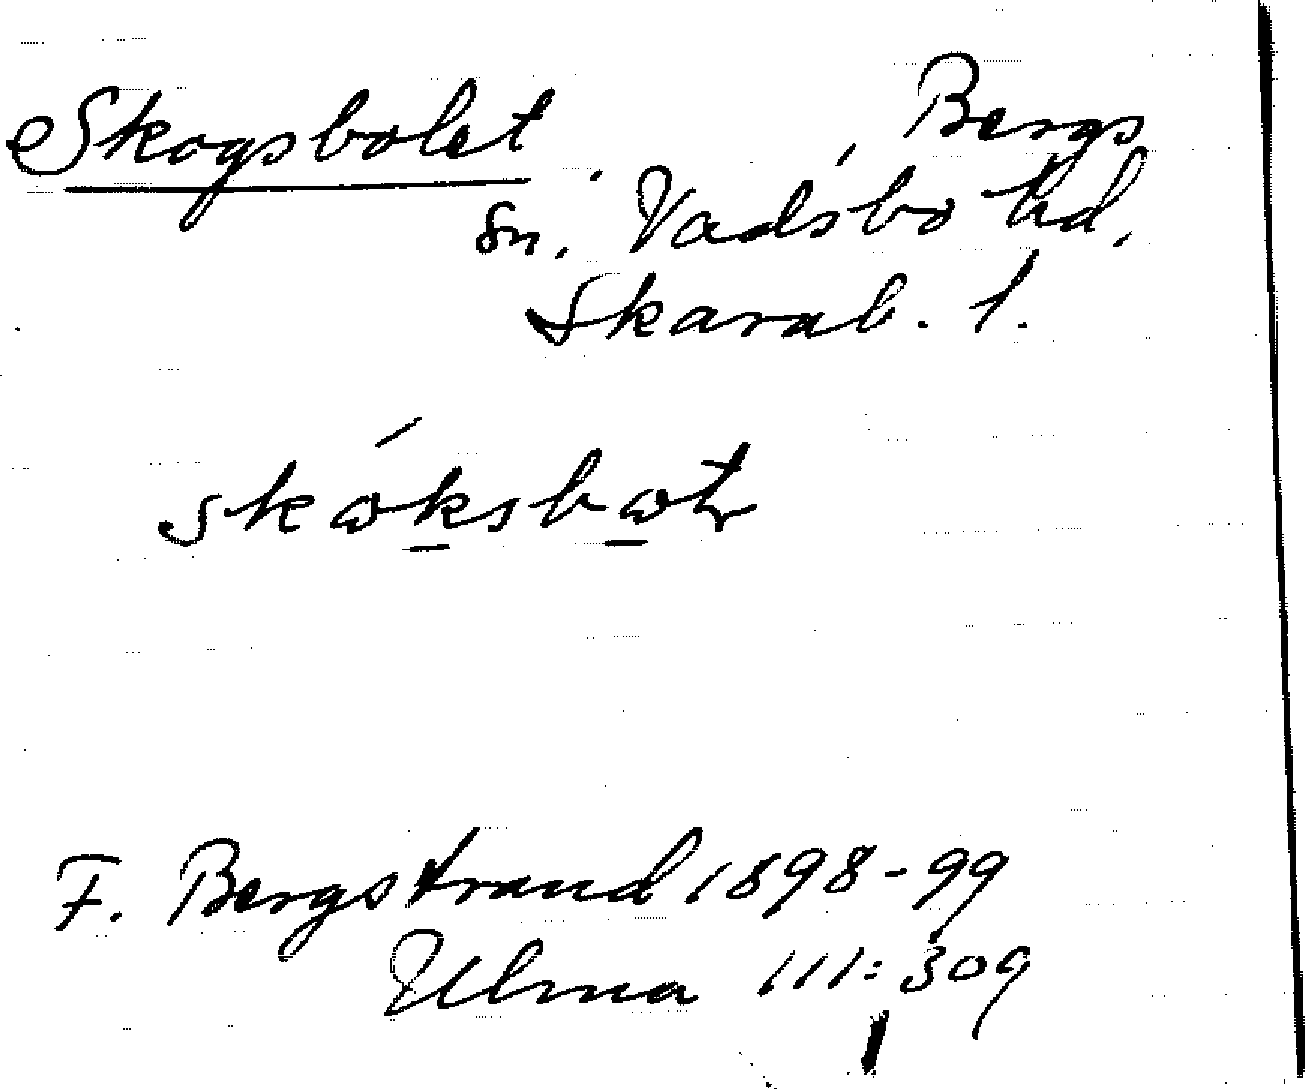 Skogsbolet, Bergs
sn. Vadsbo hd.
Skarab. l.
skɷ́ksbɷt
F. Bergstrand 1898-99
Ulma 111:309